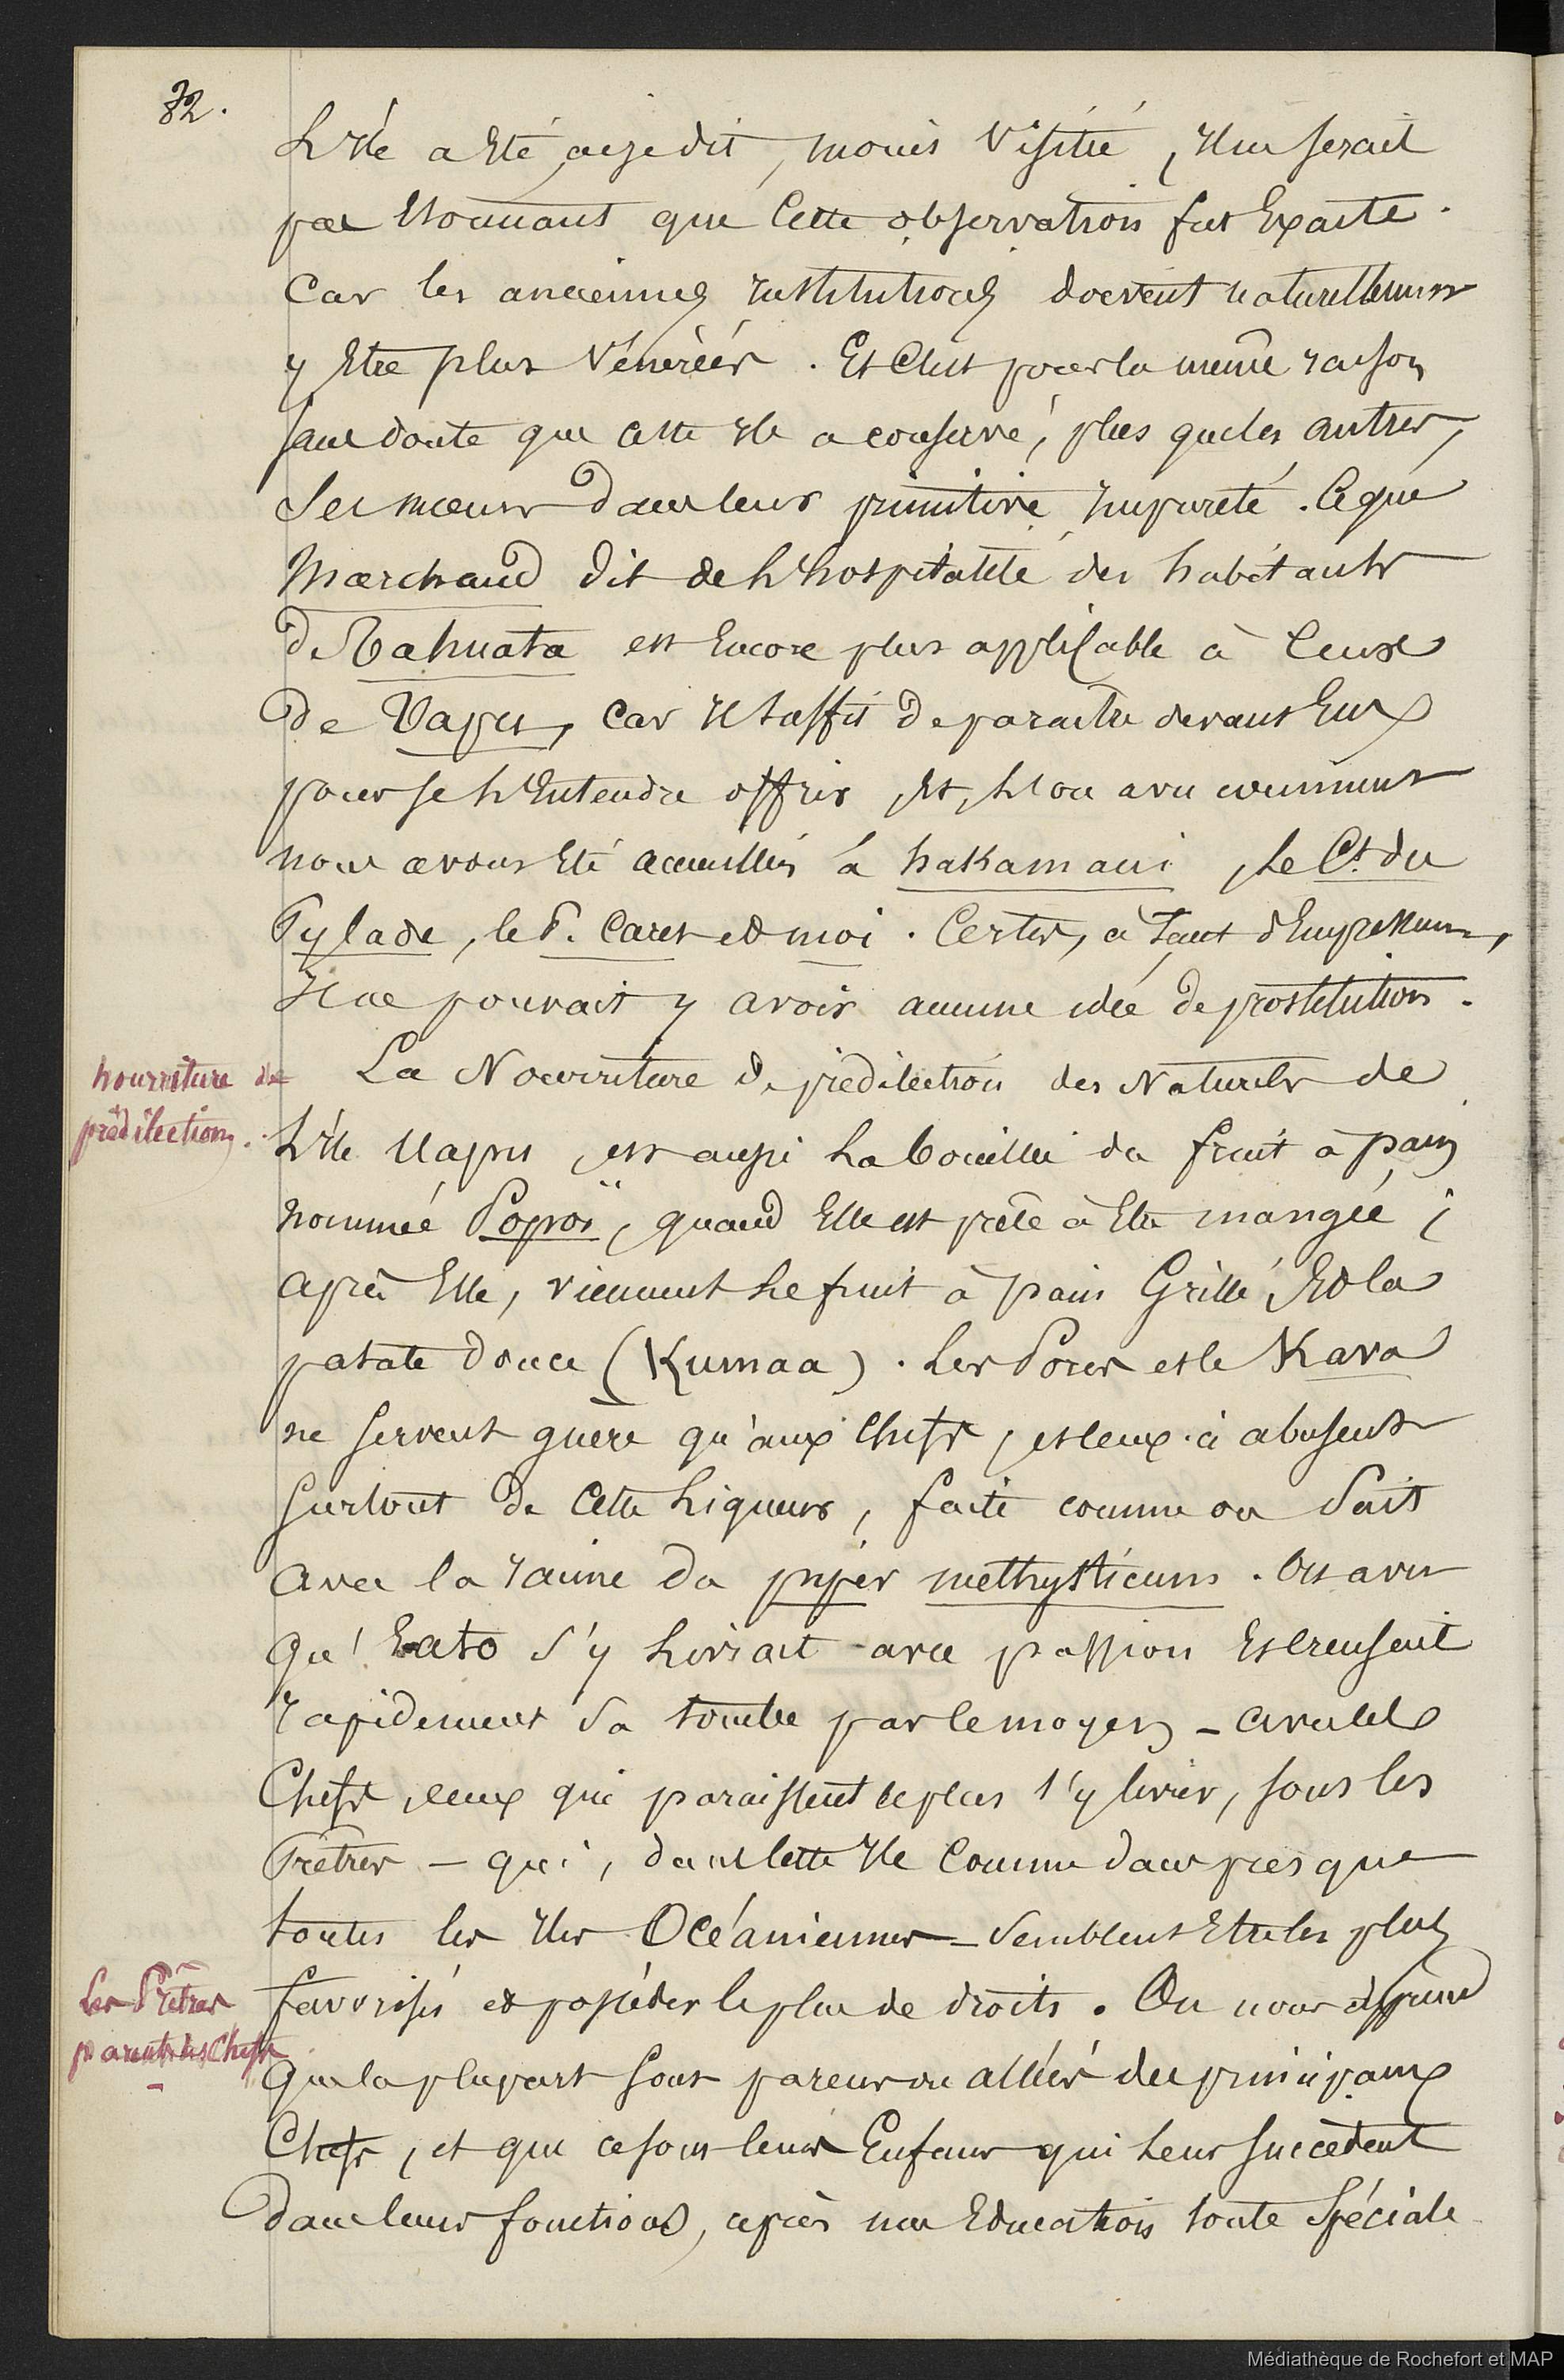 32.
L'Ile a Eté, ai-je dit, moins Visitée, Il ne serait
pas Etonnant que Cette observation fut Exacte.
Car les anciennes Institutions doevent naturellement
y Etre plus Vénérées. Et C'est pour la même raison
sans doute que cette Ile a conservé, plus que les autres,
Ses mœurs Dans leur primitive Impureté. Ce que
Marchand dit de L'hospitalité des habitants
De Tahuata est Encore plus applicable à Ceux
De Uapu, Car Il suffit De paraitre devant Eux
pour se L'Entendre offrir, Et, L'on a vu comment
nous avons Eté accueillis à hakamaui, Le Ct. du
Pylade, le P. Caret et moi. Certes, à tant d'Empressem.,
Il ne pouvait y avoir aucune idée De prostitution.
nourriture de
prédilection.
La Nourriture De prédilection des Naturels de
L'Ile Uapu, est aussi La bouillie du fruit à pain
nommée Popoï, quand Elle est prête à Etre mangée;
après Elle, viennent Le fruit à pain Grillé, Et la
patate douce (Kumaa). Les Porcs et le Kava
ne servent guère qu'aux Chefs, et ceux-ci abusent
surtout De Cette Liqueur, faite comme on Sait
avec la racine du piper methysticum. On a vu
qu'Eato S'y Livrait avec passion Et creusait
rapidement Sa tombe par le moyen – Avec les
Chefs, ceux qui paraissent le plus s'y livrer, sont les
Prêtres – qui, dans cette Ile Comme dans presque
toutes les Iles Océaniennes – Semblent Etre les plus
Les Prêtres
parents des Chefs
–
favorisés et posséder le plus de droits. On nous apprend
que la plupart sont parens ou alliés des principaux
Chefs, et que ce sont leurs Enfans qui Leur succèdent
Dans leurs fonctions, après une Education toute Spéciale
Médiathèque de Rochefort et MAP